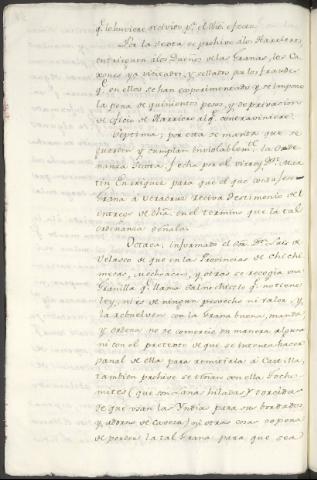 q.e lo huviere recivido p.a el dho efecto.
Por la Sexta se prohive alos Harrieros,
entreguen alos Dueños delas Granas, los Ca-
xones ya visitados, y sellados por los fraudes
q.e en ellos se han experimentado y se impone
la pena de quinientos pesos, y de privacion
de oficio de Harriero al q.e contraviniere.
Septima; por esta se manda que se
guarden y cumplan inviolablem.te la Orde-
nanza Sexta, fecha por el Virrey D.n Mar-
tin Enriquez para que el que conduxere
Grana á Veracruz traiga Testimonio del
entrego de dha, en el termino que la tal
ordenanza señala.
Octava, informado el Dho D.n Luis de
Velasco de que en las Provincias de Chichi-
mecas, Mechoacan, y otras se recogia una
Granilla q.e llama que no tiene
ley, ni es de ningun provecho ni valor, y
la rebuelven con la Grana buena, manda
y ordena no se comercie en manera alguna
ni con el pretexto de que se intenta hacer
panal de ella para remitirla á Castilla,
tambien prohive se traian con ella Toch-
mites (que son lana hilada y torcida
de que usan las Yndias para sus bordados
y adorno de caveza) ni otras cosas so pena
de perder la tal Grana para que sea